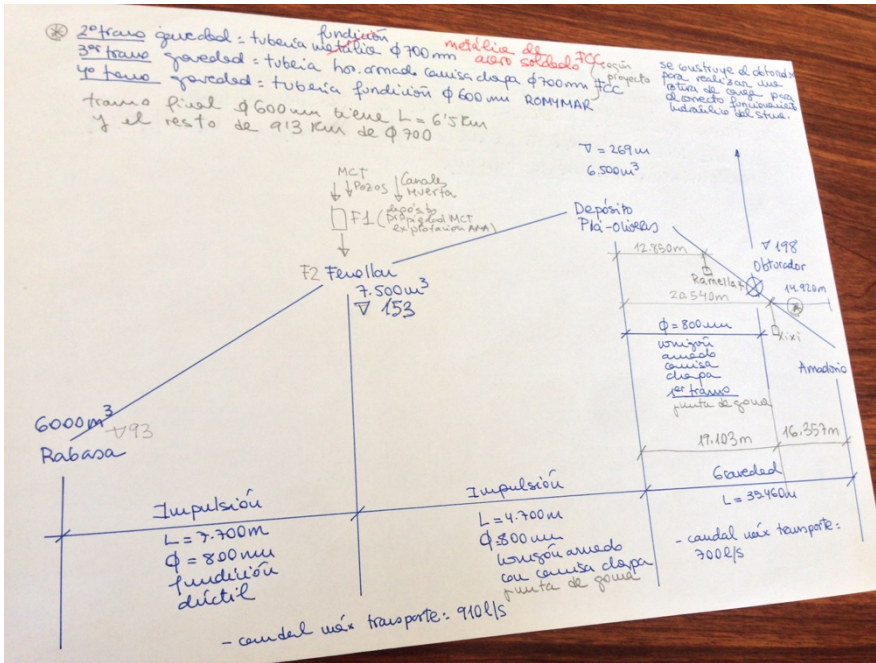 2º tramo gravedad = tubería metálica fundición φ 700mm metálica de acero soldado FCC
3er tramo gravedad = tubería hor. armado camisa chapa φ 700mm FCC
4º tramo gravedad = tubería fundición φ 600mm ROMYMAR
según proyecto
tramo final φ 600mm tiene L = 6'5 Km
y el resto de 9'3 Km de φ 700
se construye el obturador
para realizar una
rotura de carga para
el correcto funcionamiento
hidráulico del
∇ = 269m
6.500m³
MCT
Pozos
Canales
Huerta
F1 (depósito
propiedad MCT
explotación AMA)
Depósito
Plá-oliveras
F2 Fenollar
7.500m³
∇ 153
12.850m
Ramella
∇ 198
Obturador
20.540m
14.920m
Xixi
φ = 800mm
hormigón
armado
camisa
chapa
1er tramo
junta de goma
Amadorio
6000m³
∇93
Rabasa
19.103m
16.357m
Impulsión
L = 7.700m
φ = 800mm
fundición
dúctil
Impulsión
L = 4.700m
φ 800mm
hormigón armado
con camisa chapa
junta de goma
Gravedad
L = 35.460m
- caudal máx transporte:
700 l/s
- caudal máx transporte: 910 l/s